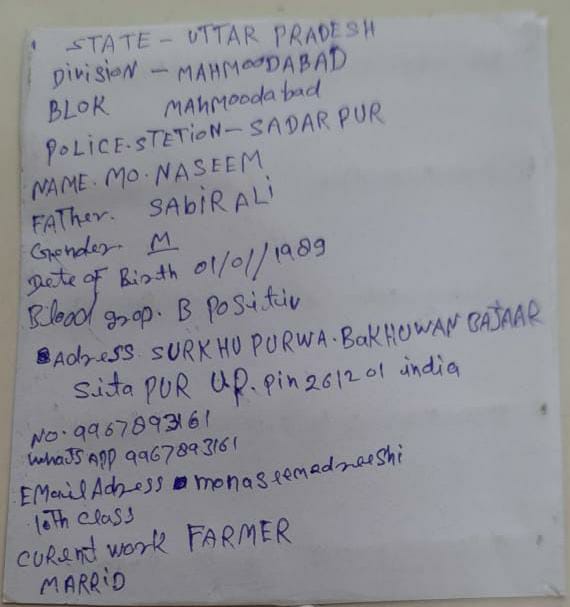 STATE - UTTAR PRADESH
Division - MAHMOODABAD
BLOK MAhmoodabad
POLICE.STETiON - SADARPUR
NAME. MO. NASEEM
FATher. SAbiR ALi
Gender. M
Dete of Birth 01/01/1989
Blood grop. B Positiv
Adress. SURKHU PURWA. BaKHUWAN BAJAAR
Sita PUR UP. Pin 261201 india
NO. 9967893161
WhatsAPP 9967893161
EMail Adress monaseem
10th class
CURent work FARMER
MARRiD